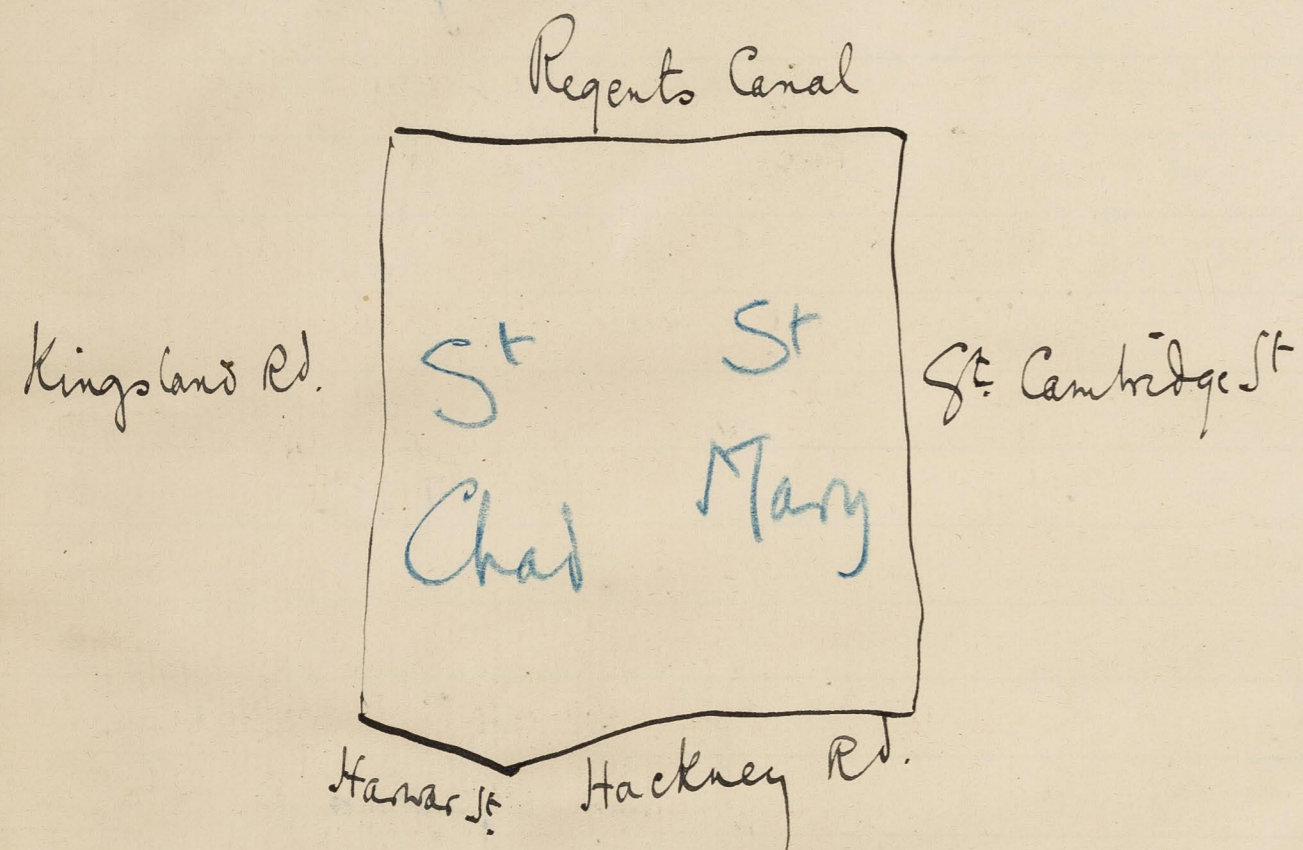 Regents Canal
Kingsland Rd.
St
Chad
St
Mary
Gt. Cambridge St
Harwar St.
Hackney Rd.